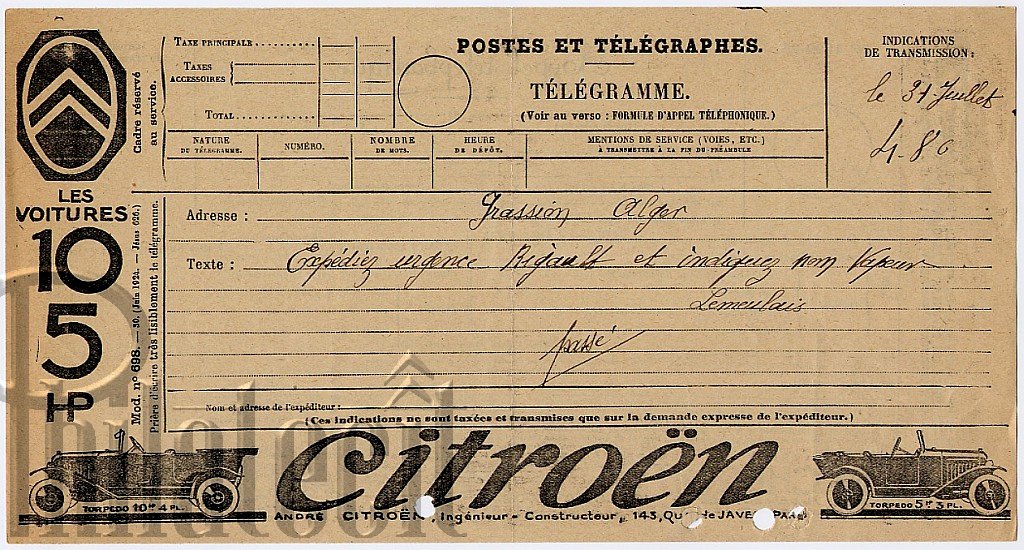 TAXE PRINCIPALE
TAXES ACCESSOIRES
TOTAL
Cadre réservé au service.
POSTES ET TÉLÉGRAPHES.
TÉLÉGRAMME.
(Voir au verso : FORMULE D'APPEL TÉLÉPHONIQUE.)
INDICATIONS DE TRANSMISSION :
le 31 Juillet
NATURE DU TÉLÉGRAMME.
NUMÉRO.
NOMBRE DE MOTS.
HEURE DE DÉPÔT.
MENTIONS DE SERVICE (VOIES, ETC.)
À TRANSMETTRE À LA FIN DU PRÉAMBULE
LES
VOITURES
10
5
HP
Mod. n° 698. — 30. (Juin 1924. — Jésus 626.)
Prière d'écrire très lisiblement le télégramme.
Adresse : Grassion Alger
Texte : Expédiez urgence Rigault et indiquez nom Vapeur
Lemeulais
passé
Nom et adresse de l'expéditeur :
(Ces indications ne sont taxées et transmises que sur la demande expresse de l'expéditeur.)
Citroën
ANDRÉ CITROËN, Ingénieur - Constructeur, 143, Quai de JAVEL, PARIS
TORPEDO 10HP 4 PL.
TORPEDO 5HP 3 PL.
Philatoöt